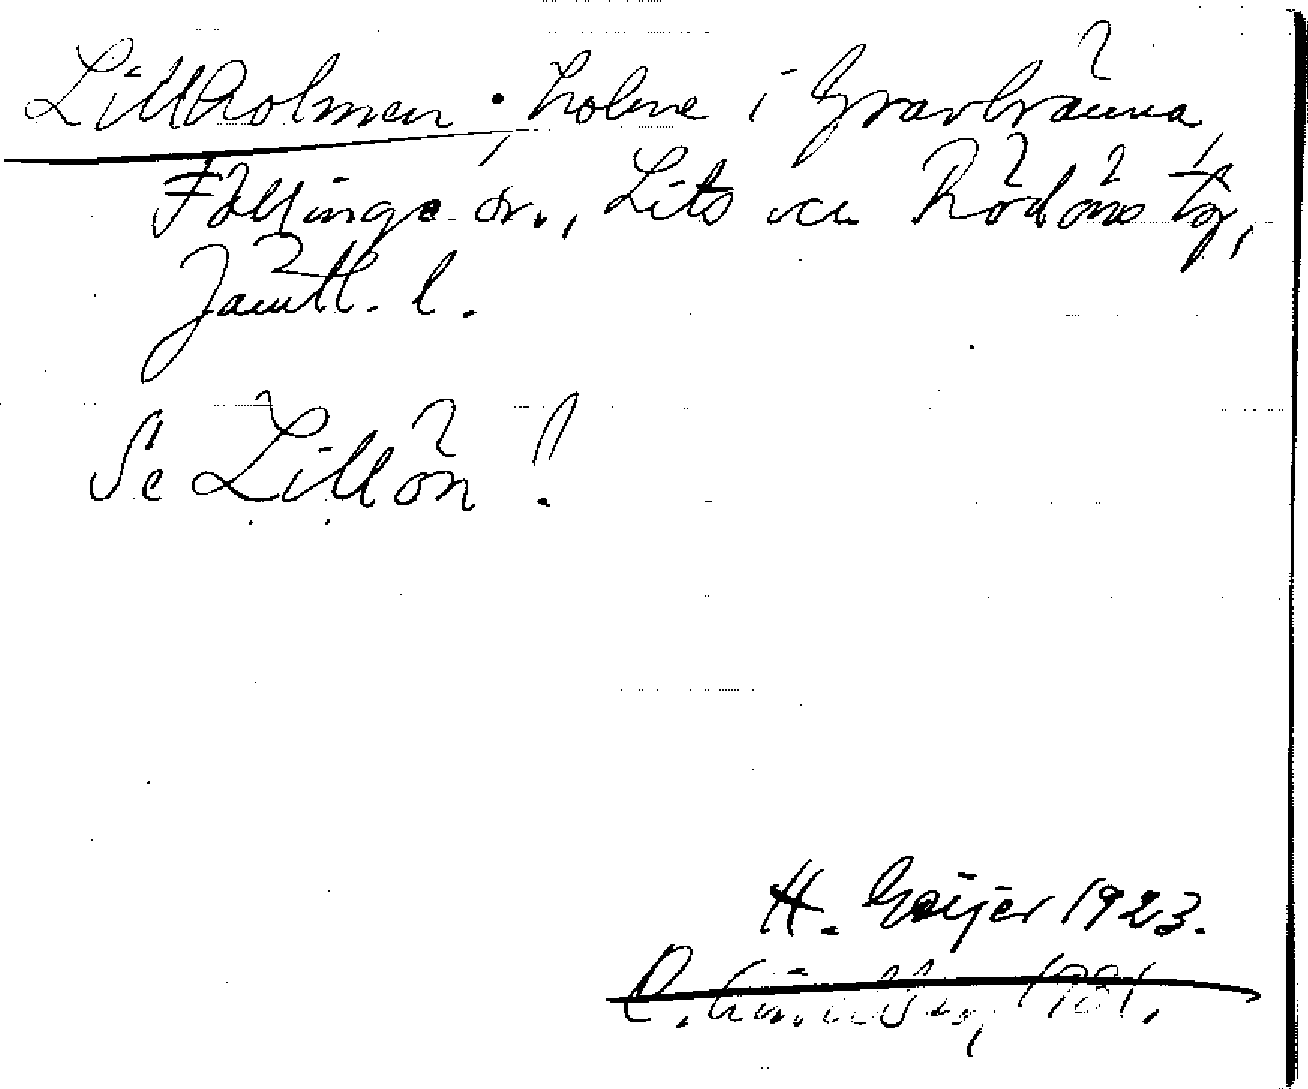 Lillholmen; holme i Gravbränna,
Föllinge sn., Lits och Rödöns tg,
Jämtl. l.
Se Lillön!
H. Geijer 1923.
1981.